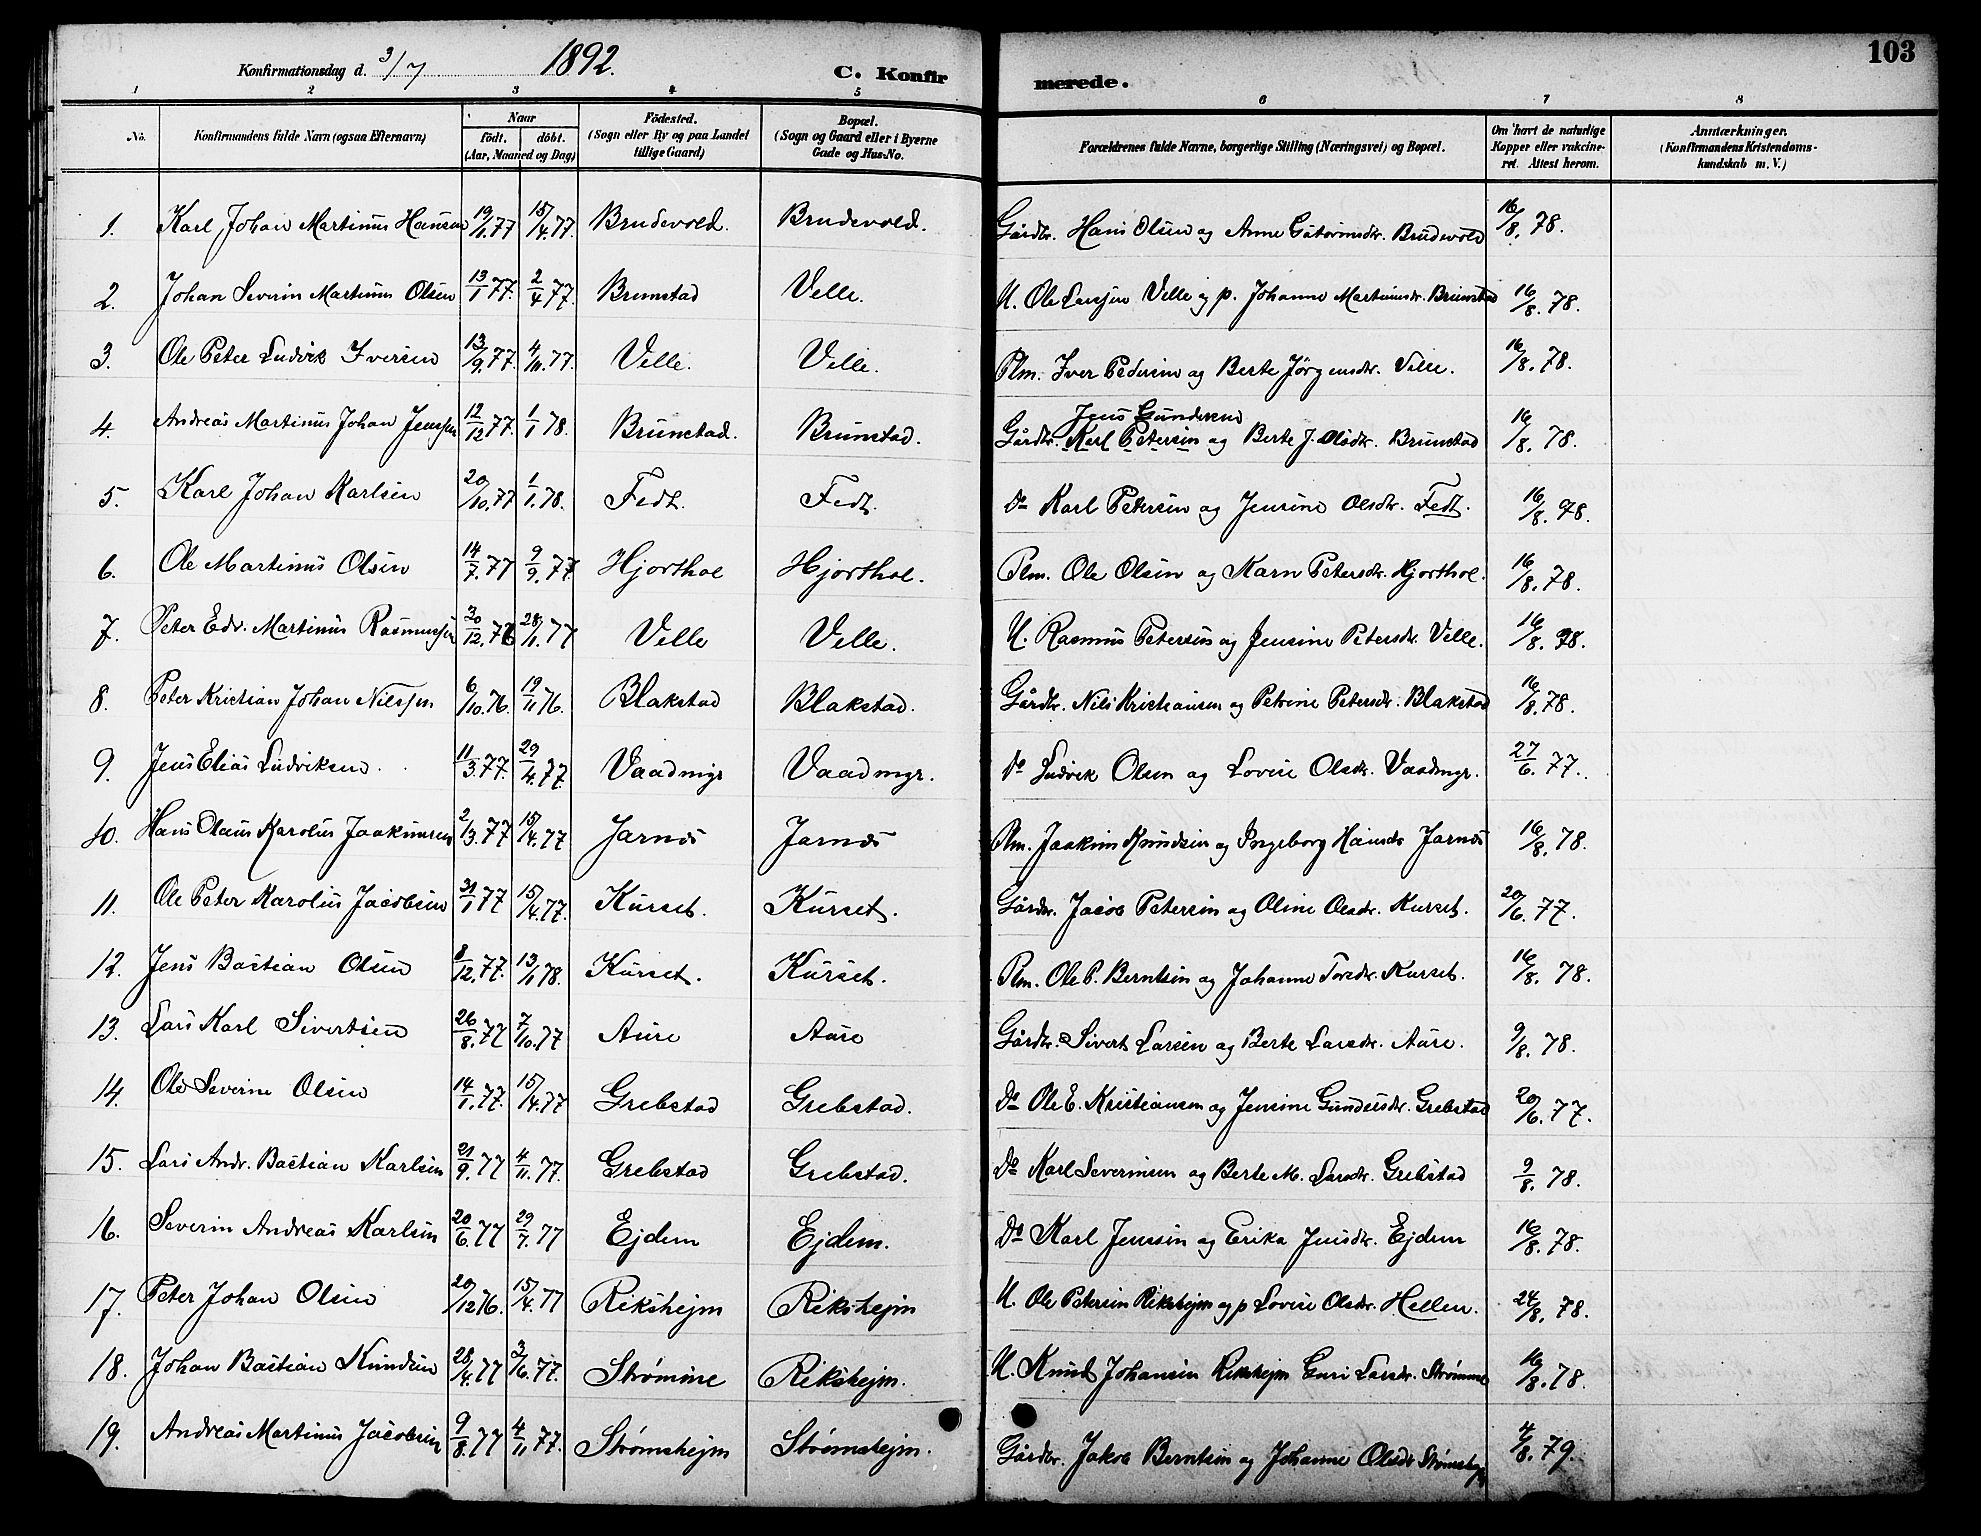 103
Konfirmationsdag d. 3/7 1892. C. Konfirmerede.
1 2 3 4 5 6 7 8
No. Konfirmandens fulde Navn (ogsaa Efternavn) Naar födt. döbt. (Aar, Maaned og Dag) Födested. (Sogn eller By og paa Landet tillige Gaard) Bopæl. (Sogn og Gaard eller i Byerne Gade og Hus-No. Forældrenes fulde Navne, borgerlige Stilling (Næringsvei) og Bopæl. Om havt de naturlige Kopper eller vakcineret. Attest herom. Anmærkninger. (Konfirmandens Kristendomskundskab m. V.)
1. Karl Johan Martinus Hansen 19/1.77 15/4.77. Brudevold. Brudevold. Gårdbr. Hans Olsen og Anne Gutormsdr. Brudevold 16/8.78.
2. Johan Severin Martinus Olsen 13/1 77. 2/4 77. Brunstad Velle. U. Ole Larsen Velle og p. Johanne Martinusdr. Brunstad 16/8.78.
3. Ole Peter Ludvik Iversen 13/9.77. 4/11.77. Velle. Velle. Plm. Iver Pedersen og Berte Jörgensdr. Velle. 16/8.78.
4. Andreas Martinus Johan Jenssen 12/12 77. 1/1 78. Brunstad. Brunstad. Gårdbr. Karl Petersen Jens Gundersen og Berte J. Olsdr. Brunstad 16/8.78.
5. Karl Johan Karlsen 20/10.77 1/1.78. Fedt. Fedt. Do Karl Petersen og Jensine Olsdr. Fedt. 16/8.78.
6. Ole Martinus Olsen 14/7.77 9/9.77 Hjorthol Hjorthol. Plm. Ole Olsen og Karn Petersdr. Hjorthol. 16/8.78.
7. Peter Edv. Martinus Rasmussen 30/12.76 28/1.77 Velle Velle. U. Rasmus Petersen og Jensine Petersdr. Velle. 16/8.78.
8. Peter Kristian Johan Nilssen 6/10.76. 19/11 76. Blakstad Blakstad. Gårdbr. Nils Kristiansen og Petrine Petersdr. Blakstad 16/8.78.
9. Jens Elias Ludviksen. 11/3.77. 29/4.77. Vaadmyr Vaadmyr. Do Ludvik Olsen og Lovise Olsdr. Vaadmyr. 27/6.77.
10. Hans Olaus Karolus Jaakimsen 2/3.77 15/4.77 Jarnes Jarnes Plm. Jaakim Knudsen og Ingeborg Hansdr Jarnes 16/8.78.
11. Ole Peter Karolus Jacobsen 31/1 77 15/4.77. Kurset. Kurset. Gårdbr. Jacob Petersen og Oline Olsdr. Kurset. 20/6.77.
12. Jens Bastian Olsen 8/12.77. 13/1 78. Kurset. Kurset. Plm. Ole P. Berntsen og Johanne Toredr. Kurset. 16/8.78.
13. Lars Karl Sivertsen 26/8.77 7/10.77 Aure Aure Gårdbr. Sivert Larsen og Berte Larsdr. Aure. 9/8.78.
14. Ole Severine Olsen 14/1.77. 15/4.77 Grebstad Grebstad. Do Ole E. Kristiansen og Jensine Gundersdr. Grebstad 20/6.77.
15. Lars Andr. Bastian Karlsen 21/9.77 4/11.77. Grebstad Grebstad. Do Karl Severinsen og Berte M. Larsdr. Grebstad 9/8.78.
16. Severin Andreas Karlsen 20/6.77 29/7.77 Ejdem Ejdem. Do Karl Jenssen og Erika Jensdr. Ejdem 16/8.78.
17. Peter Johan Olsen 20/12 76. 15/4.77 Rikshejm Rikshejm U. Ole Petersen Rikshejm og p Lovise Olsdr. Hellen. 24/8.78.
18. Johan Bastian Knudsen 28/4.77 3/6.77. Strømme Rikshejm. U. Knud Johansen Rikshejm Guri Larsdr. Strømme 16/8.78.
19. Andreas Martinus Jacobsen 9/8.77 4/11 77. Strømshejm Strømshejm. Gårdbr. Jakob Berntsen og Johanne Olsdr Strømshejm 4/8.79.